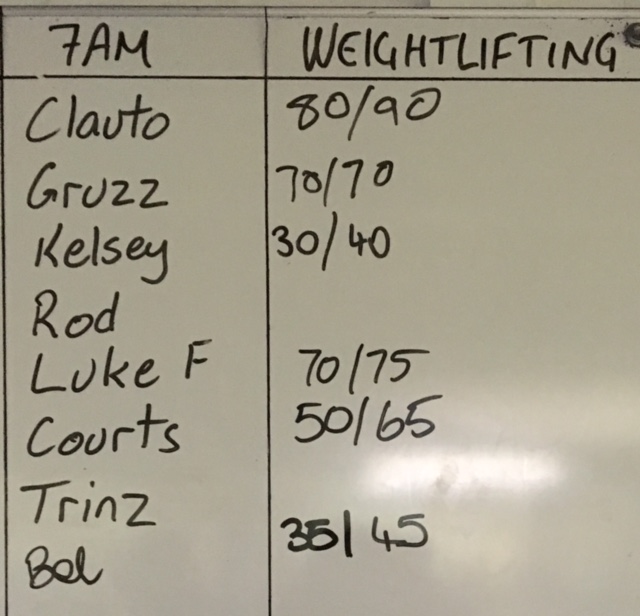 7AM WEIGHTLIFTING
Clauto 80/90
Gruzz 70/70
Kelsey 30/40
Rod
Luke F 70/75
Courts 50/65
Trinz
35/45
Bel